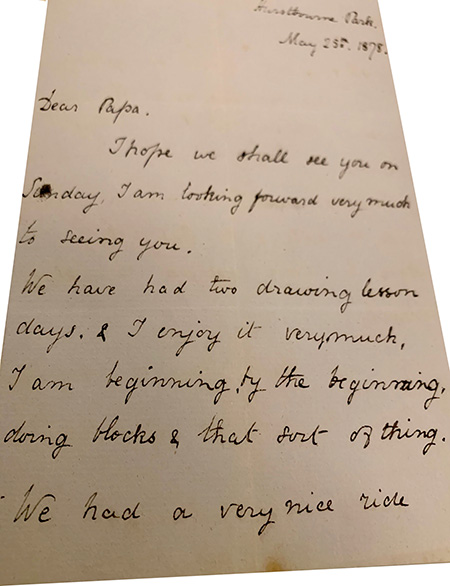 Hurstbourne Park.
May 23rd. 1878.
Dear Papa.
I hope we shall see you on
Sunday, I am looking forward very much
to seeing you.
We have had two drawing lesson
days. & I enjoy it verymuch,
I am beginning, by the beginning,
doing blocks & that sort of thing.
We had a very nice ride